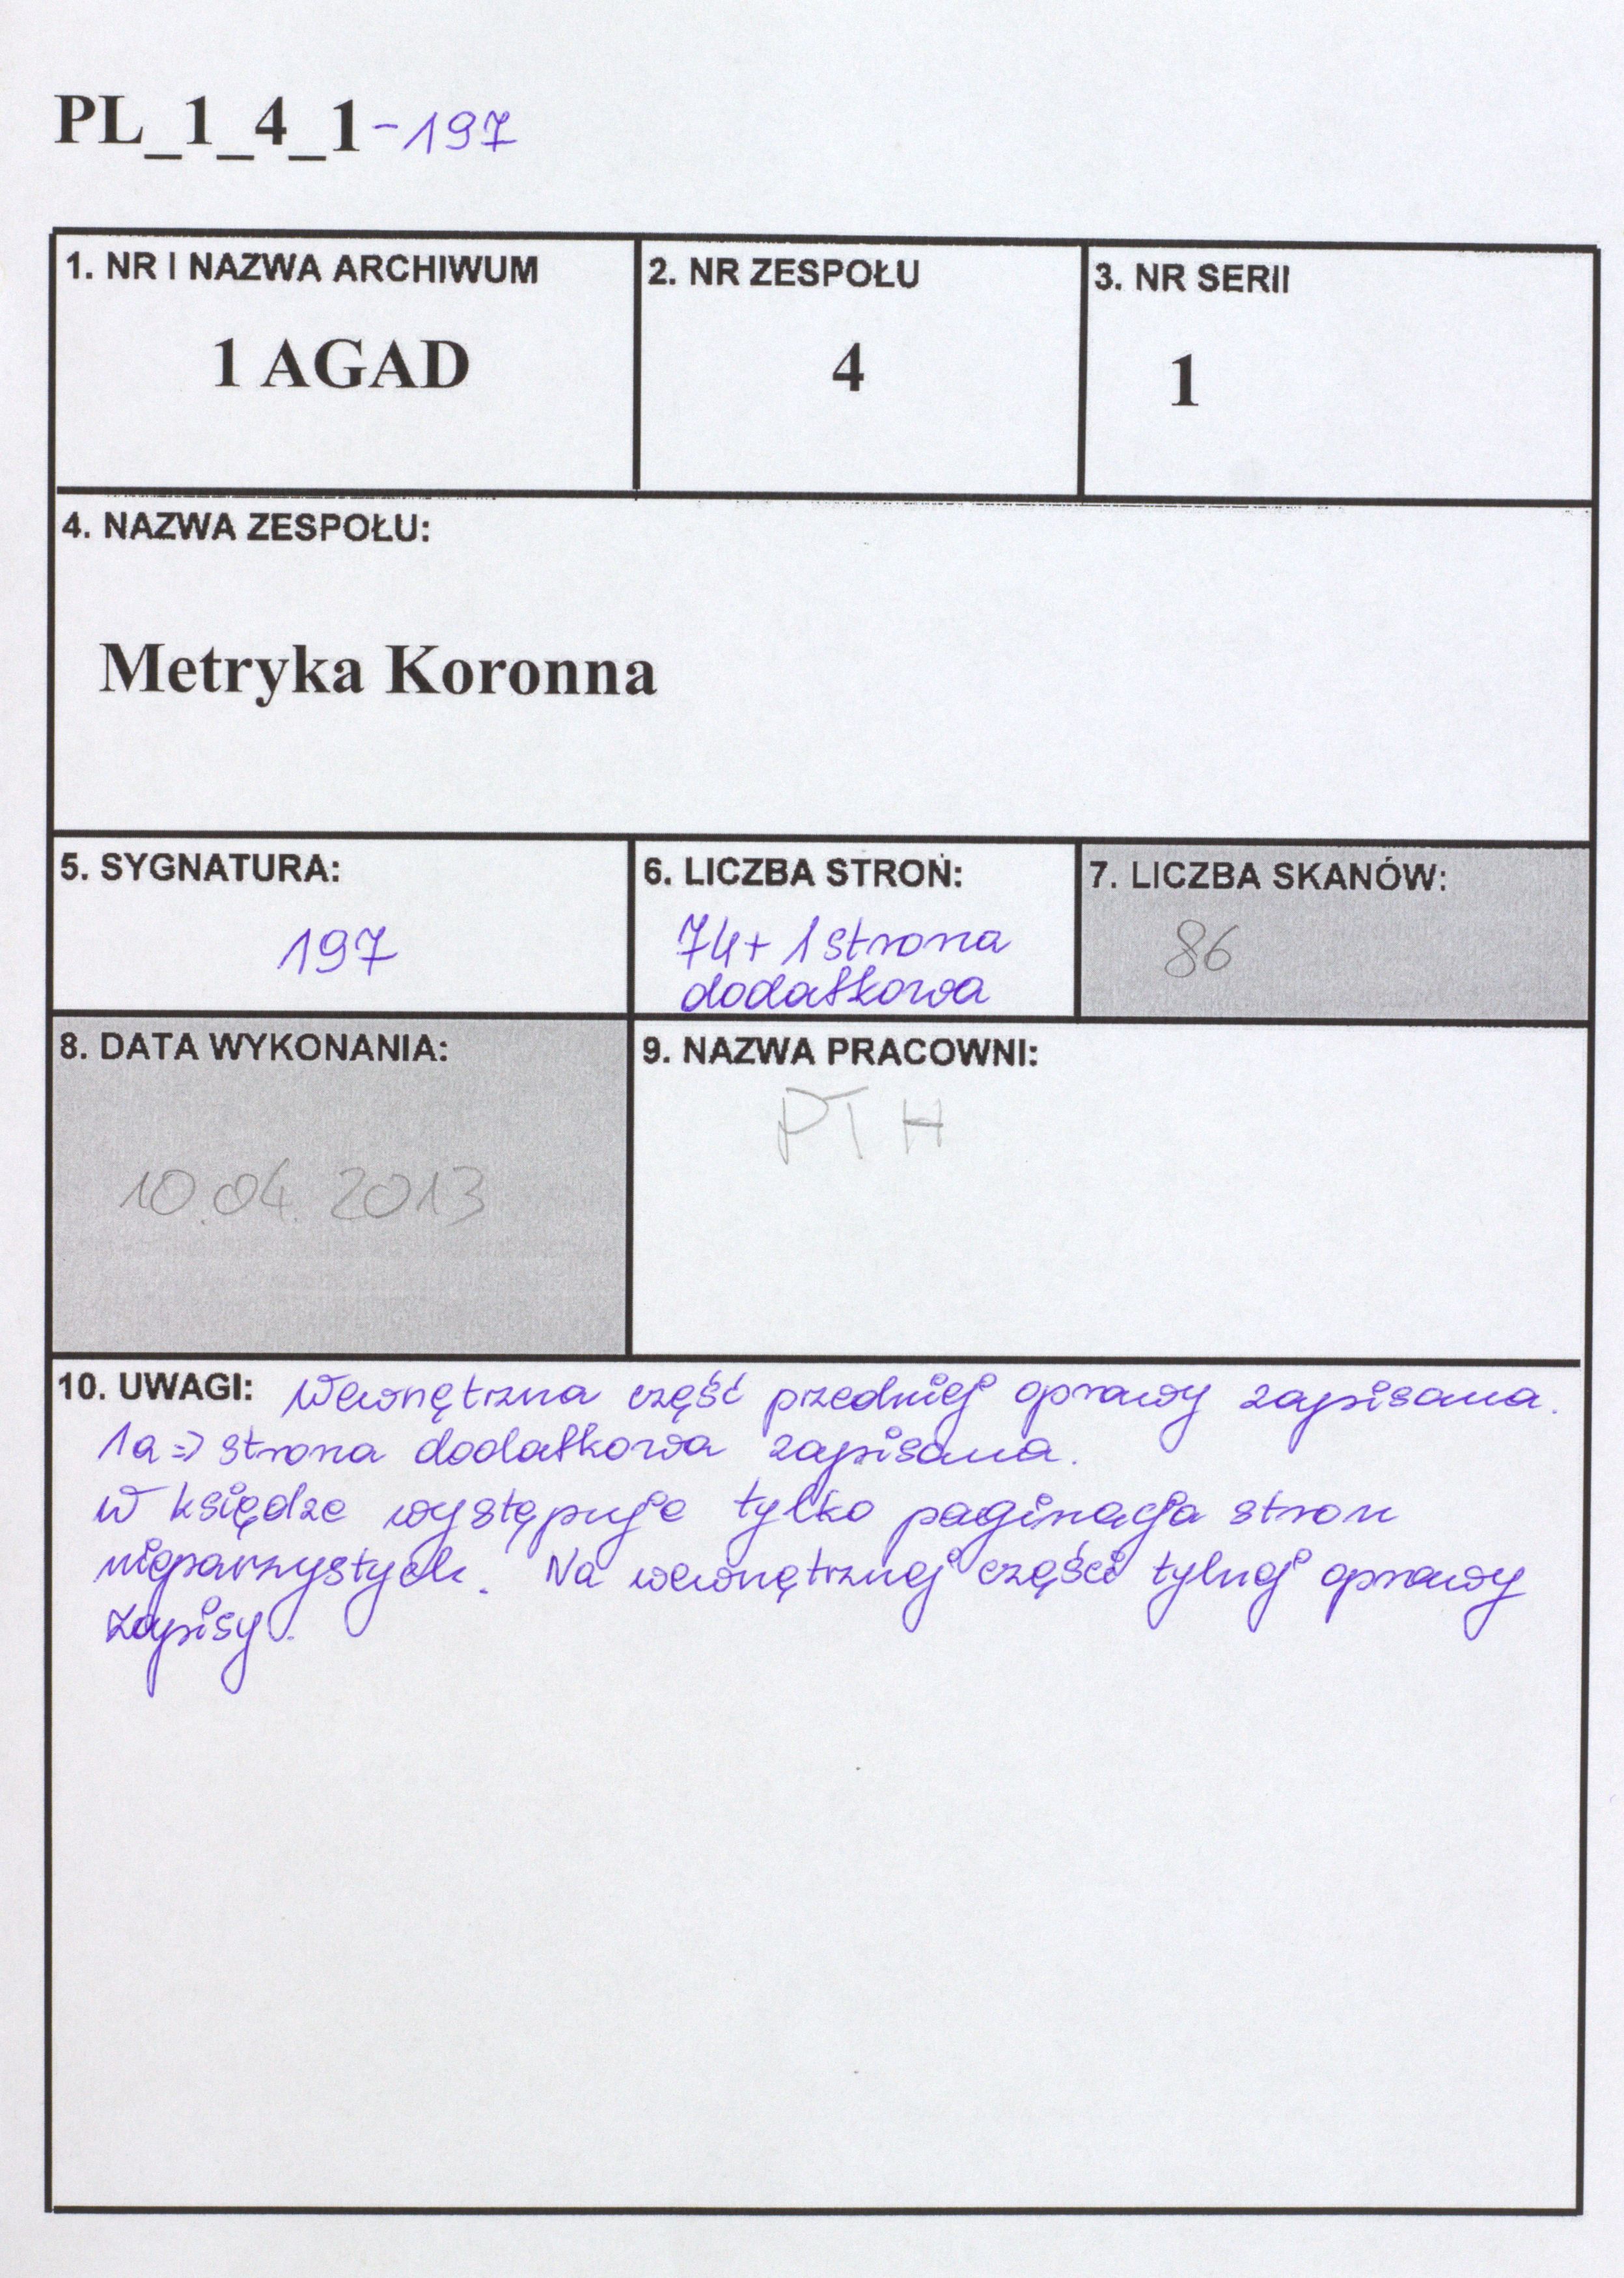 PL_1_4_1-197
1. NR I NAZWA ARCHIWUM
1 AGAD
2. NR ZESPOŁU
4
3. NR SERII
1
4. NAZWA ZESPOŁU:
Metryka Koronna
5. SYGNATURA:
197
6. LICZBA STRON:
74+ 1 strona
dodatkowa
7. LICZBA SKANÓW:
86
8. DATA WYKONANIA:
10.04.2013
9. NAZWA PRACOWNI:
PTH
10. UWAGI: Wewnętrzna część przedniej oprawy zapisana.
1a => strona dodatkowa zapisana.
W księdze występuje tylko paginacja stron
nieparzystych. Na wewnętrznej części tylnej oprawy
zapisy.